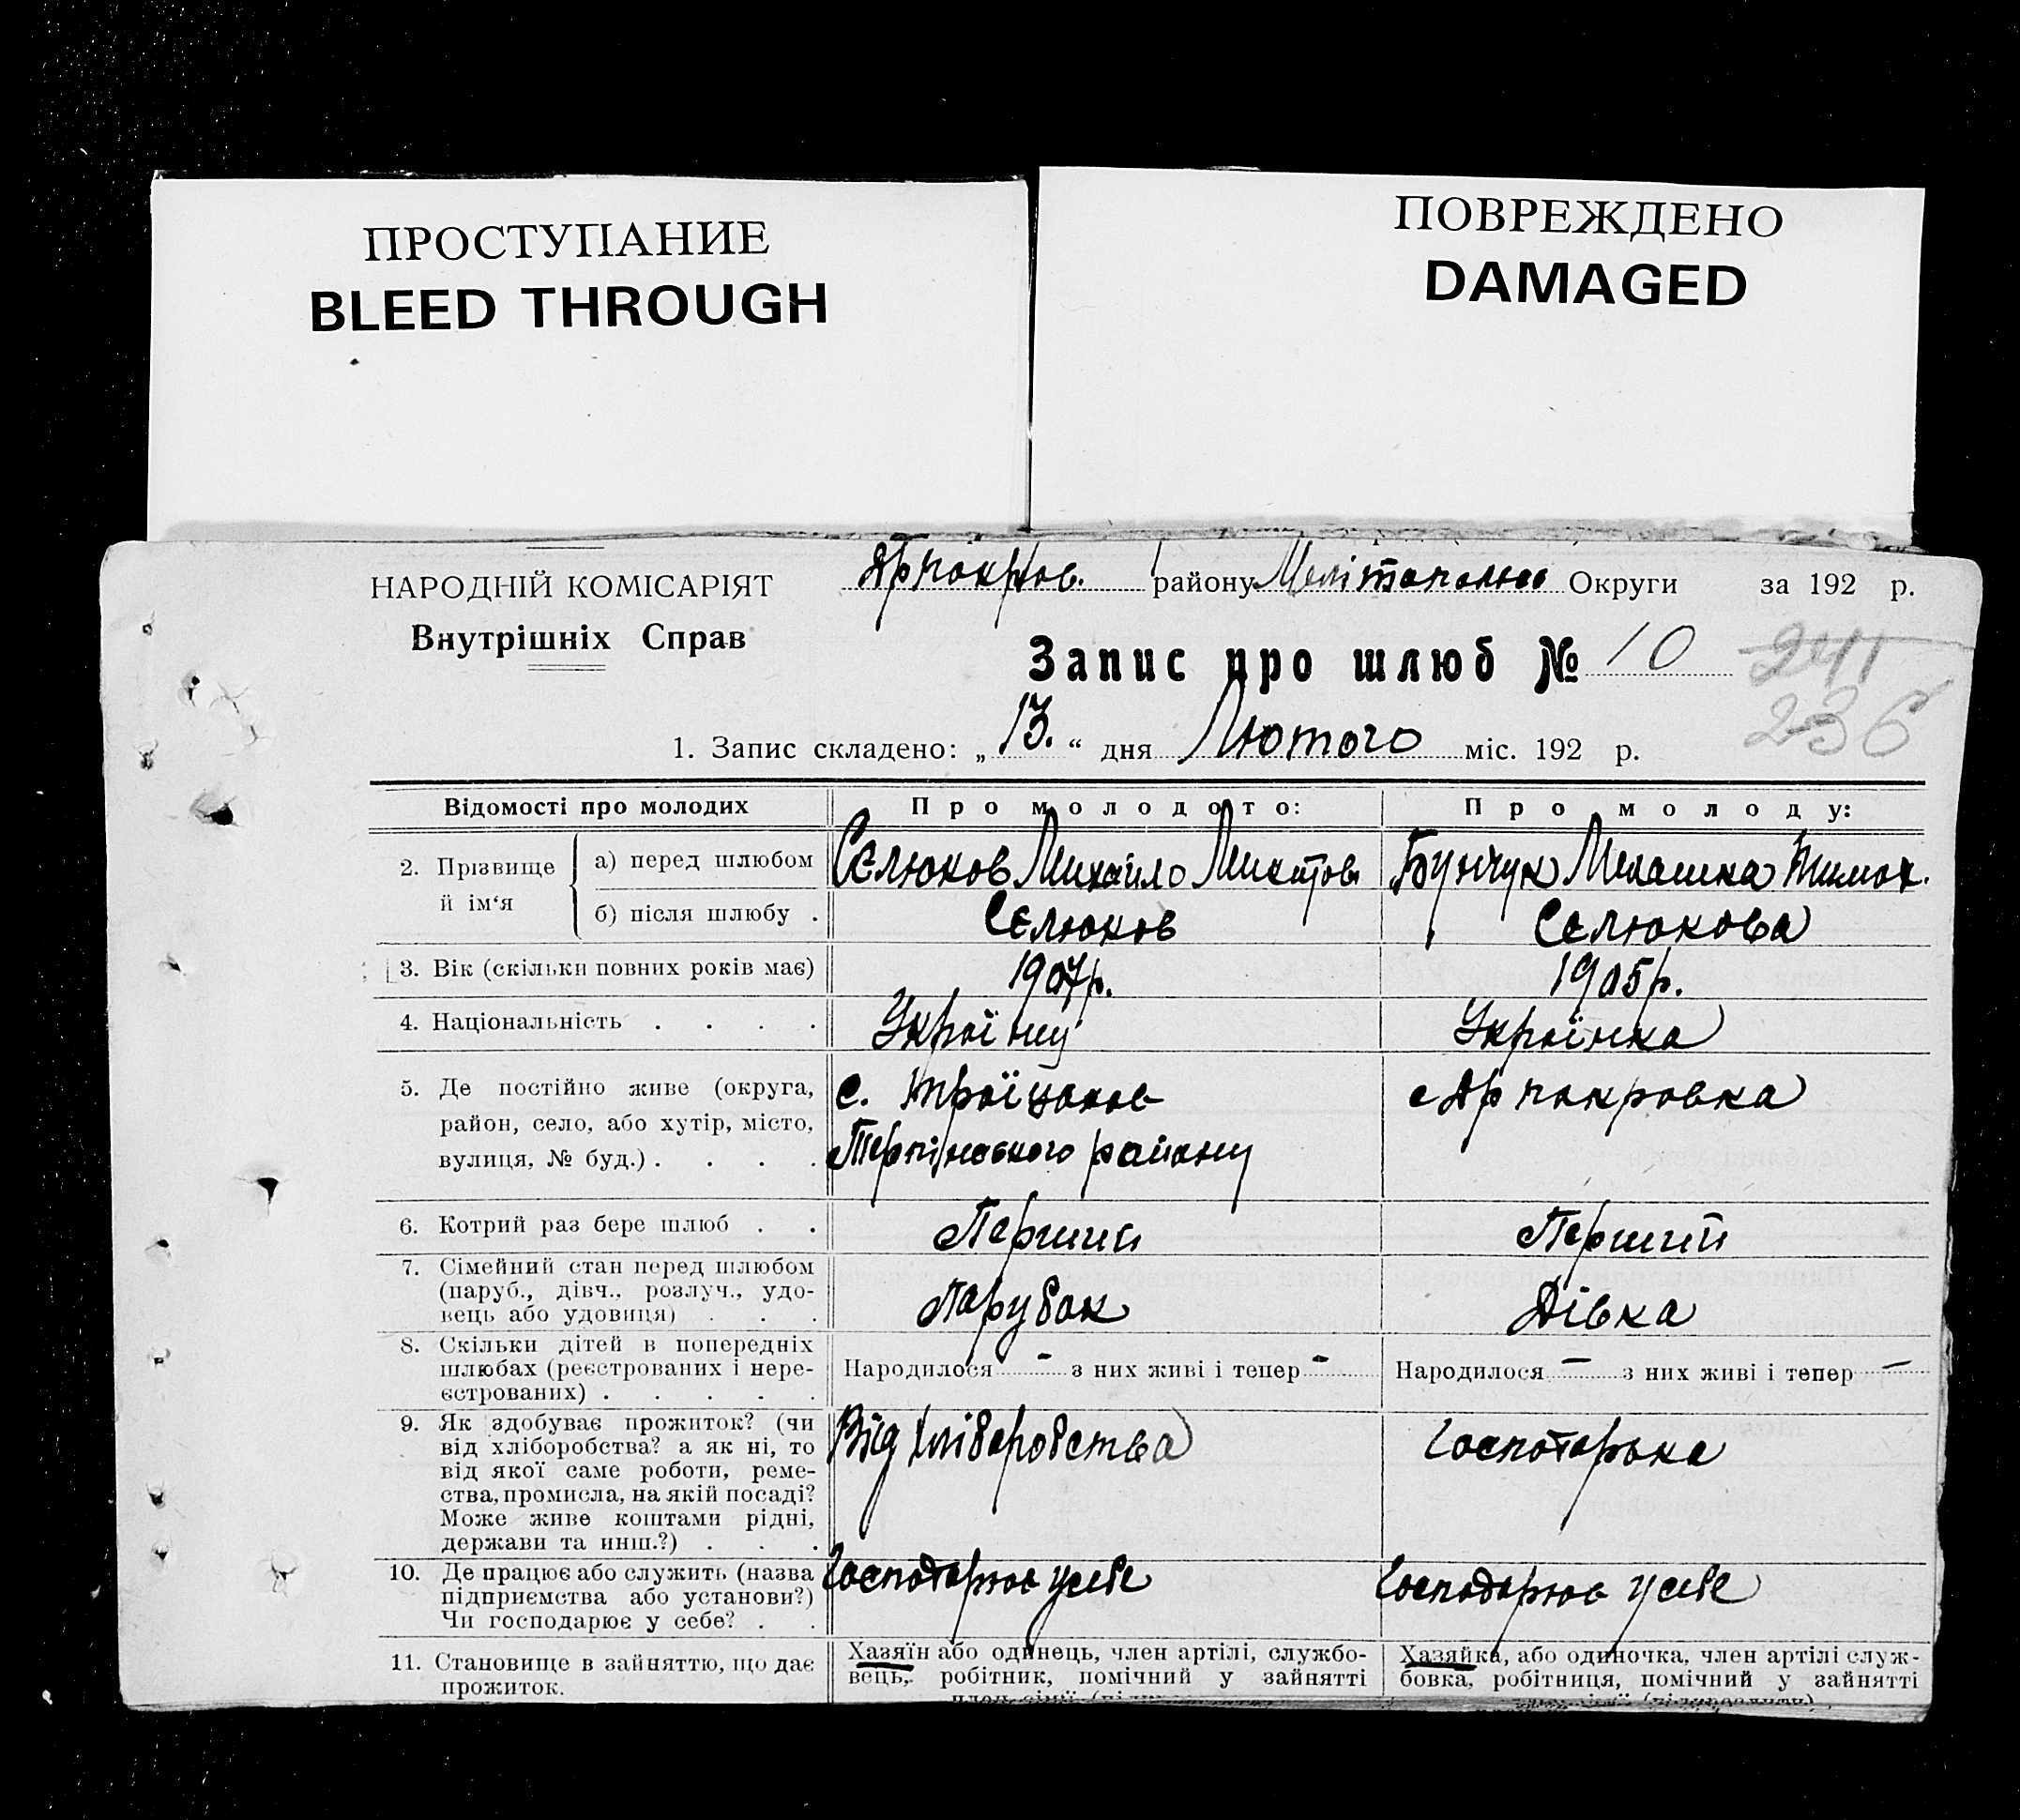 ПРОСТУПАНИЕ
BLEED THROUGH
ПОВРЕЖДЕНО
DAMAGED
НАРОДНІЙ КОМІСАРІЯТ
Внутрішніх Справ
району Округи за 192 р.
Запис про шлюб № 10
241
236
1. Запис складено: „13.“ дня Лютого міс. 192 р.
Відомості про молодих
Про молодого:
Про молоду:
2. Прізвище й ім‘я
а) перед шлюбом
Сєлюков Михайло Микитов
Бунчук Мелашка Тимох.
б) після шлюбу .
Сєлюков
Селюкова
3. Вік (скільки повних років має)
1907р.
1905р.
4. Національність . . . .
Українц
Українка
5. Де постійно живе (округа,
район, село, або хутір, місто,
вулиця, № буд.) . . . .
с.
району
6. Котрий раз бере шлюб . .
Перший
Перший
7. Сімейний стан перед шлюбом
(паруб., дівч., розлуч., удо-
вець або удовиця) . . .
Парубок
Дівка
8. Скільки дітей в попередніх
шлюбах (реєстрованих і нере-
єстрованих) . . . . .
Народилося - з них живі і тепер -
Народилося — з них живі і тепер —
9. Як здобуває прожиток? (чи
від хліборобства? а як ні, то
від якої саме роботи, реме-
ства, промисла, на якій посаді?
Може живе коштами рідні,
держави та инш.?) . . .
Від хліборобства
10. Де працює або служить (назва
підприємства або установи?)
Чи господарює у себе? . .
Господарює у себе
Господарює у себе
11. Становище в зайняттю, що дає
прожиток.
Хазяїн або одинець, член артілі, службо-
вець, робітник, помічний у зайнятті
Хазяйка, або одиночка, член артілі служ-
бовка, робітниця, помічний у зайнятті